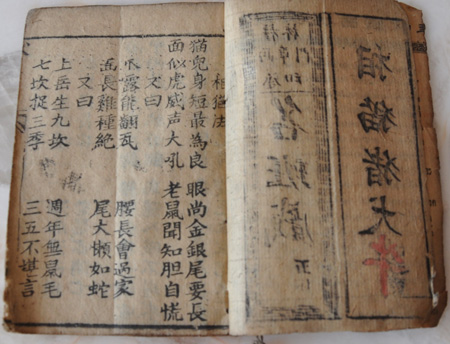 相猫猪犬牛
相猫法
猫兒身短最為良 眼尚金銀尾要長
面似虎威声大吼 老鼠聞知胆自慌
又曰
露能翻瓦 腰長會過家
面長雞種絶 尾大懶如蛇
又曰
上岳生九坎 週年無鼠毛
七坎捉三季 三五不堪言